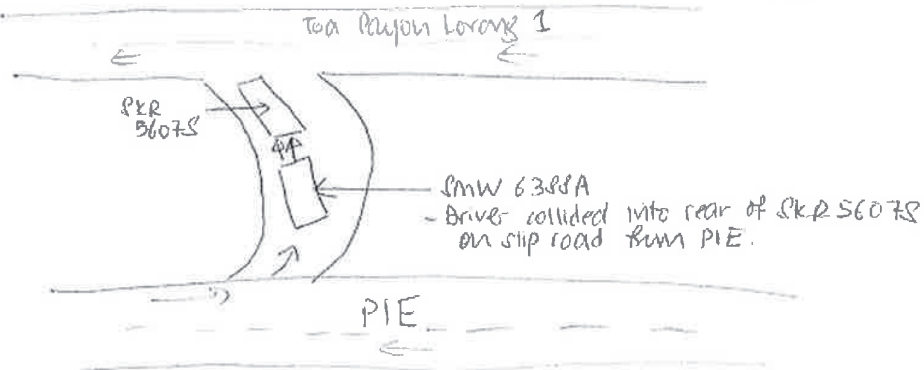 Toa Payoh Lorong 1
SKR
5607S
SMW 6388A
- Driver collided into rear of SKR 5607S
on slip road from PIE.
PIE